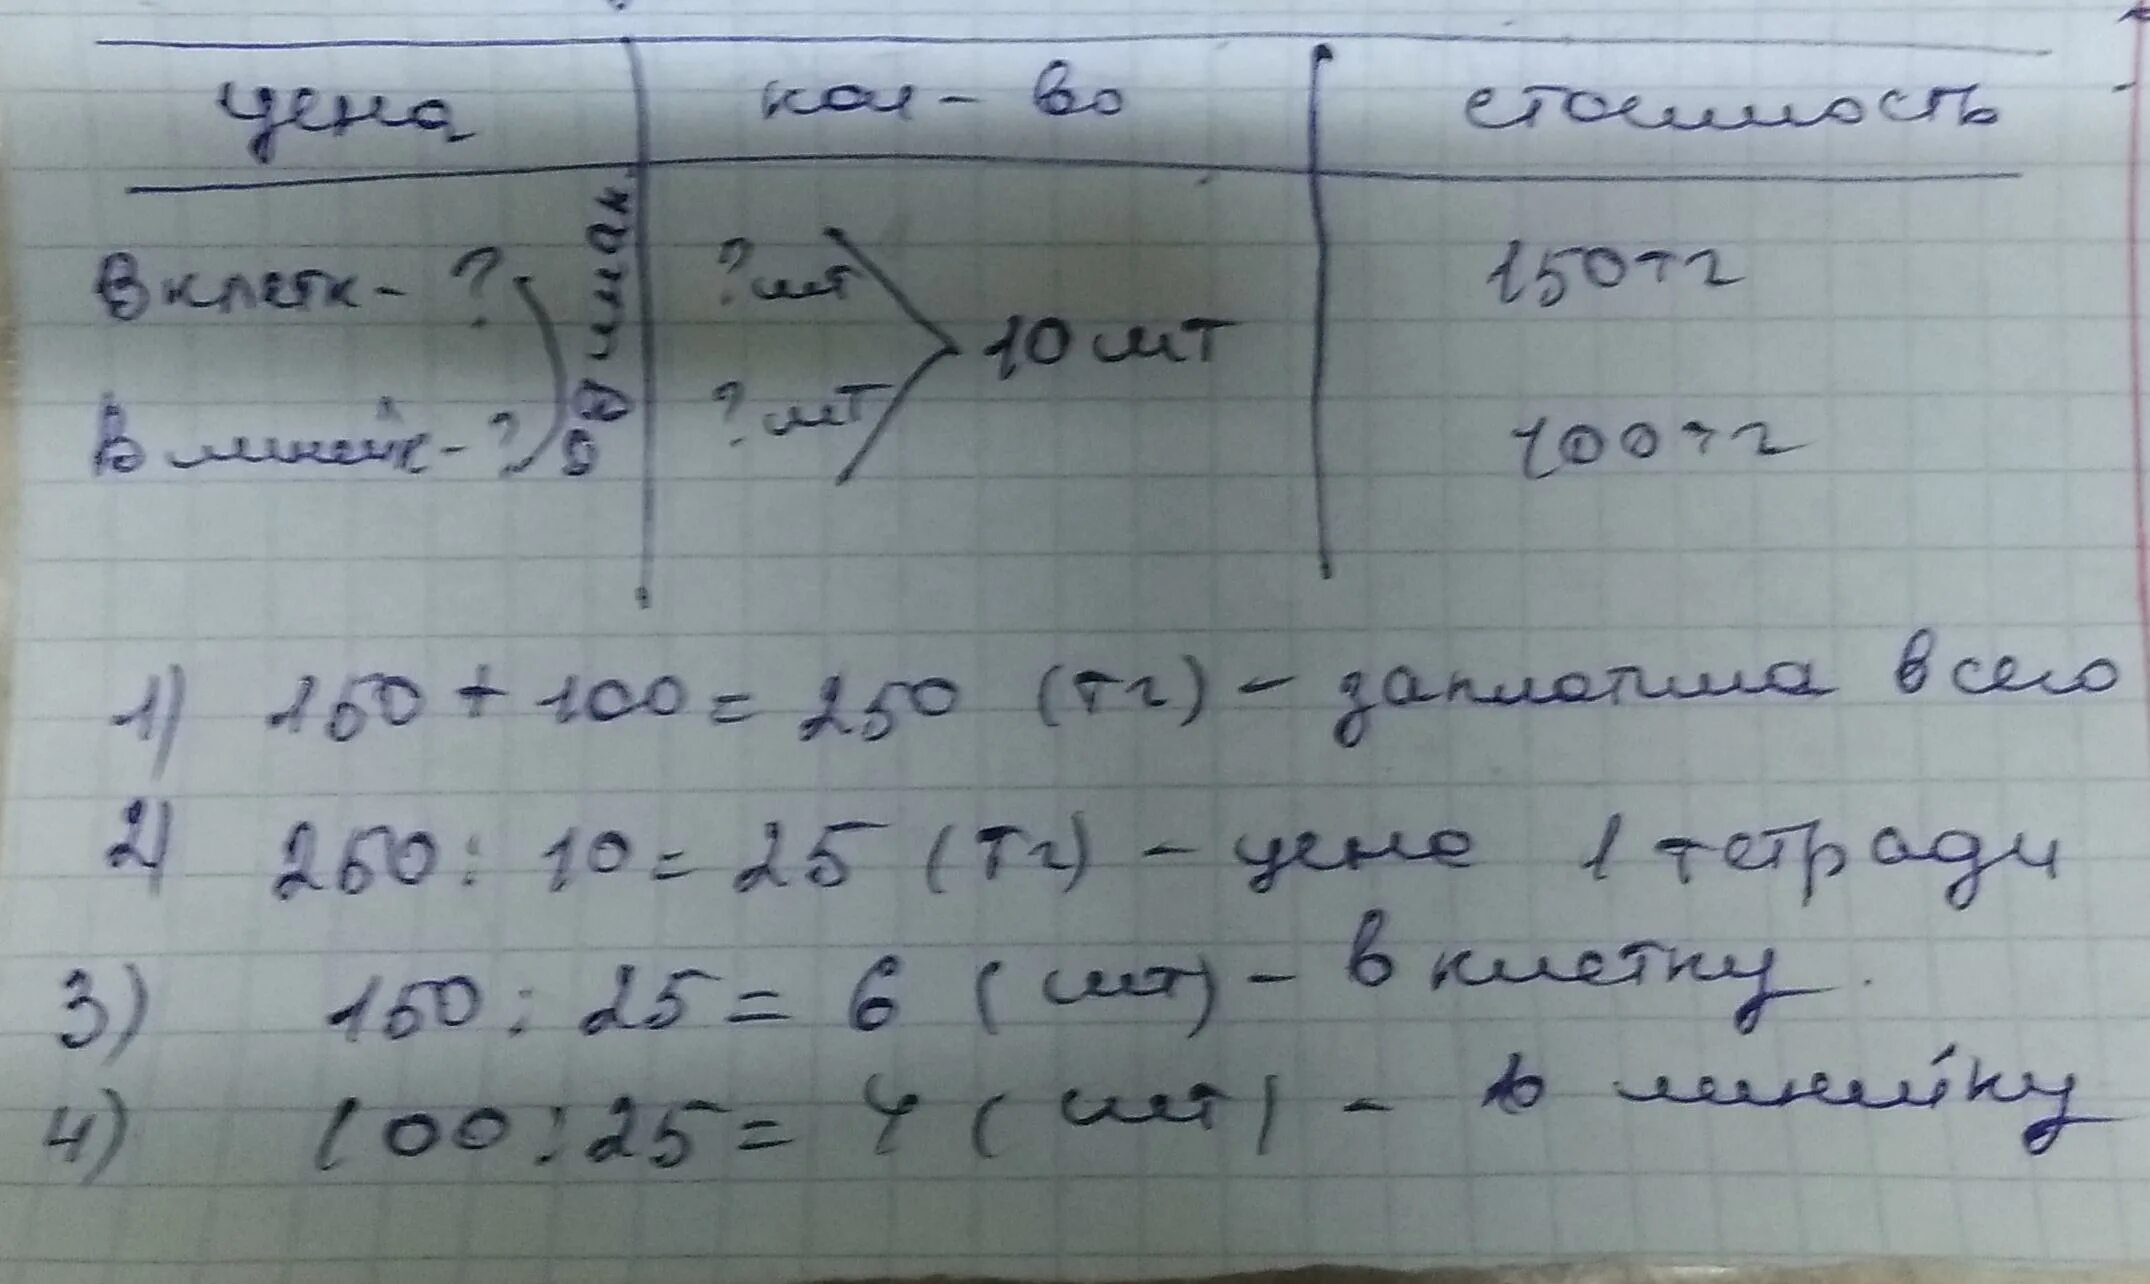 цена кол-во стоимость
В клетк - ? одинак. ? шт 150 тг
10 шт
В линейк - ? ? шт 100 тг
1) 150 + 100 = 250 (тг) - заплатила всего
2) 250 : 10 = 25 (тг) - цена 1 тетради
3) 150 : 25 = 6 (шт) - в клетку.
4) 100 : 25 = 4 (шт) - в линейку